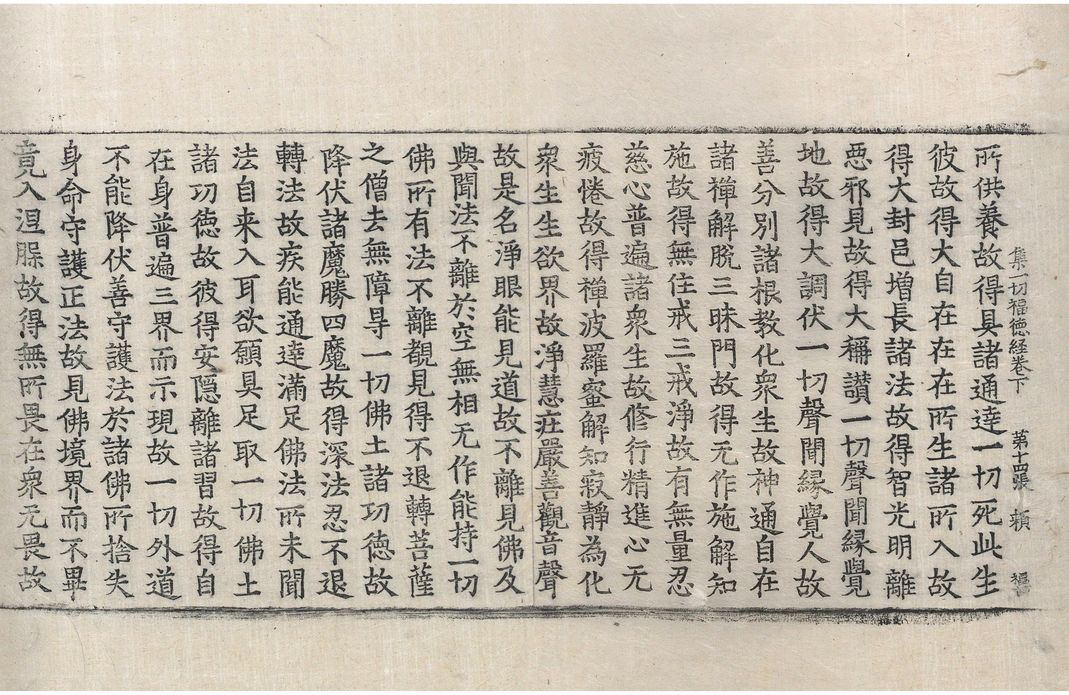 集一切福德経卷下 第十四張 頼 福
所供養故得具諸通達一切死此生
彼故得大自在在在所生諸所入故
得大封邑增長諸法故得智光明離
惡邪見故得大稱讃一切聲聞緣覺
地故得大調伏一切聲聞緣覺人故
善分別諸根教化衆生故神通自在
諸禪解脫三昧門故得无作施解知
施故得無住戒三戒淨故有無量忍
慈心普遍諸衆生故修行精進心无
疲惓故得禪波羅蜜解知寂靜為化
衆生生欲界故淨慧疘嚴善觀音聲
故是名淨眼能見道故不離見佛及
與聞法不離於空無相无作能持一切
佛所有法不離覩見得不退轉菩薩
之僧去無障㝵一切佛土諸功德故
降伏諸魔勝四魔故得深法忍不退
轉法故疾能通逹滿足佛法所未聞
法自来入耳欲願具足取一切佛土
諸功德故彼得安隱離諸習故得自
在身普遍三界而示現故一切外道
不能降伏善守護法於諸佛所捨失
身命守護正法故見佛境界而不畢
竟入涅槃故得無所畏在衆无畏故